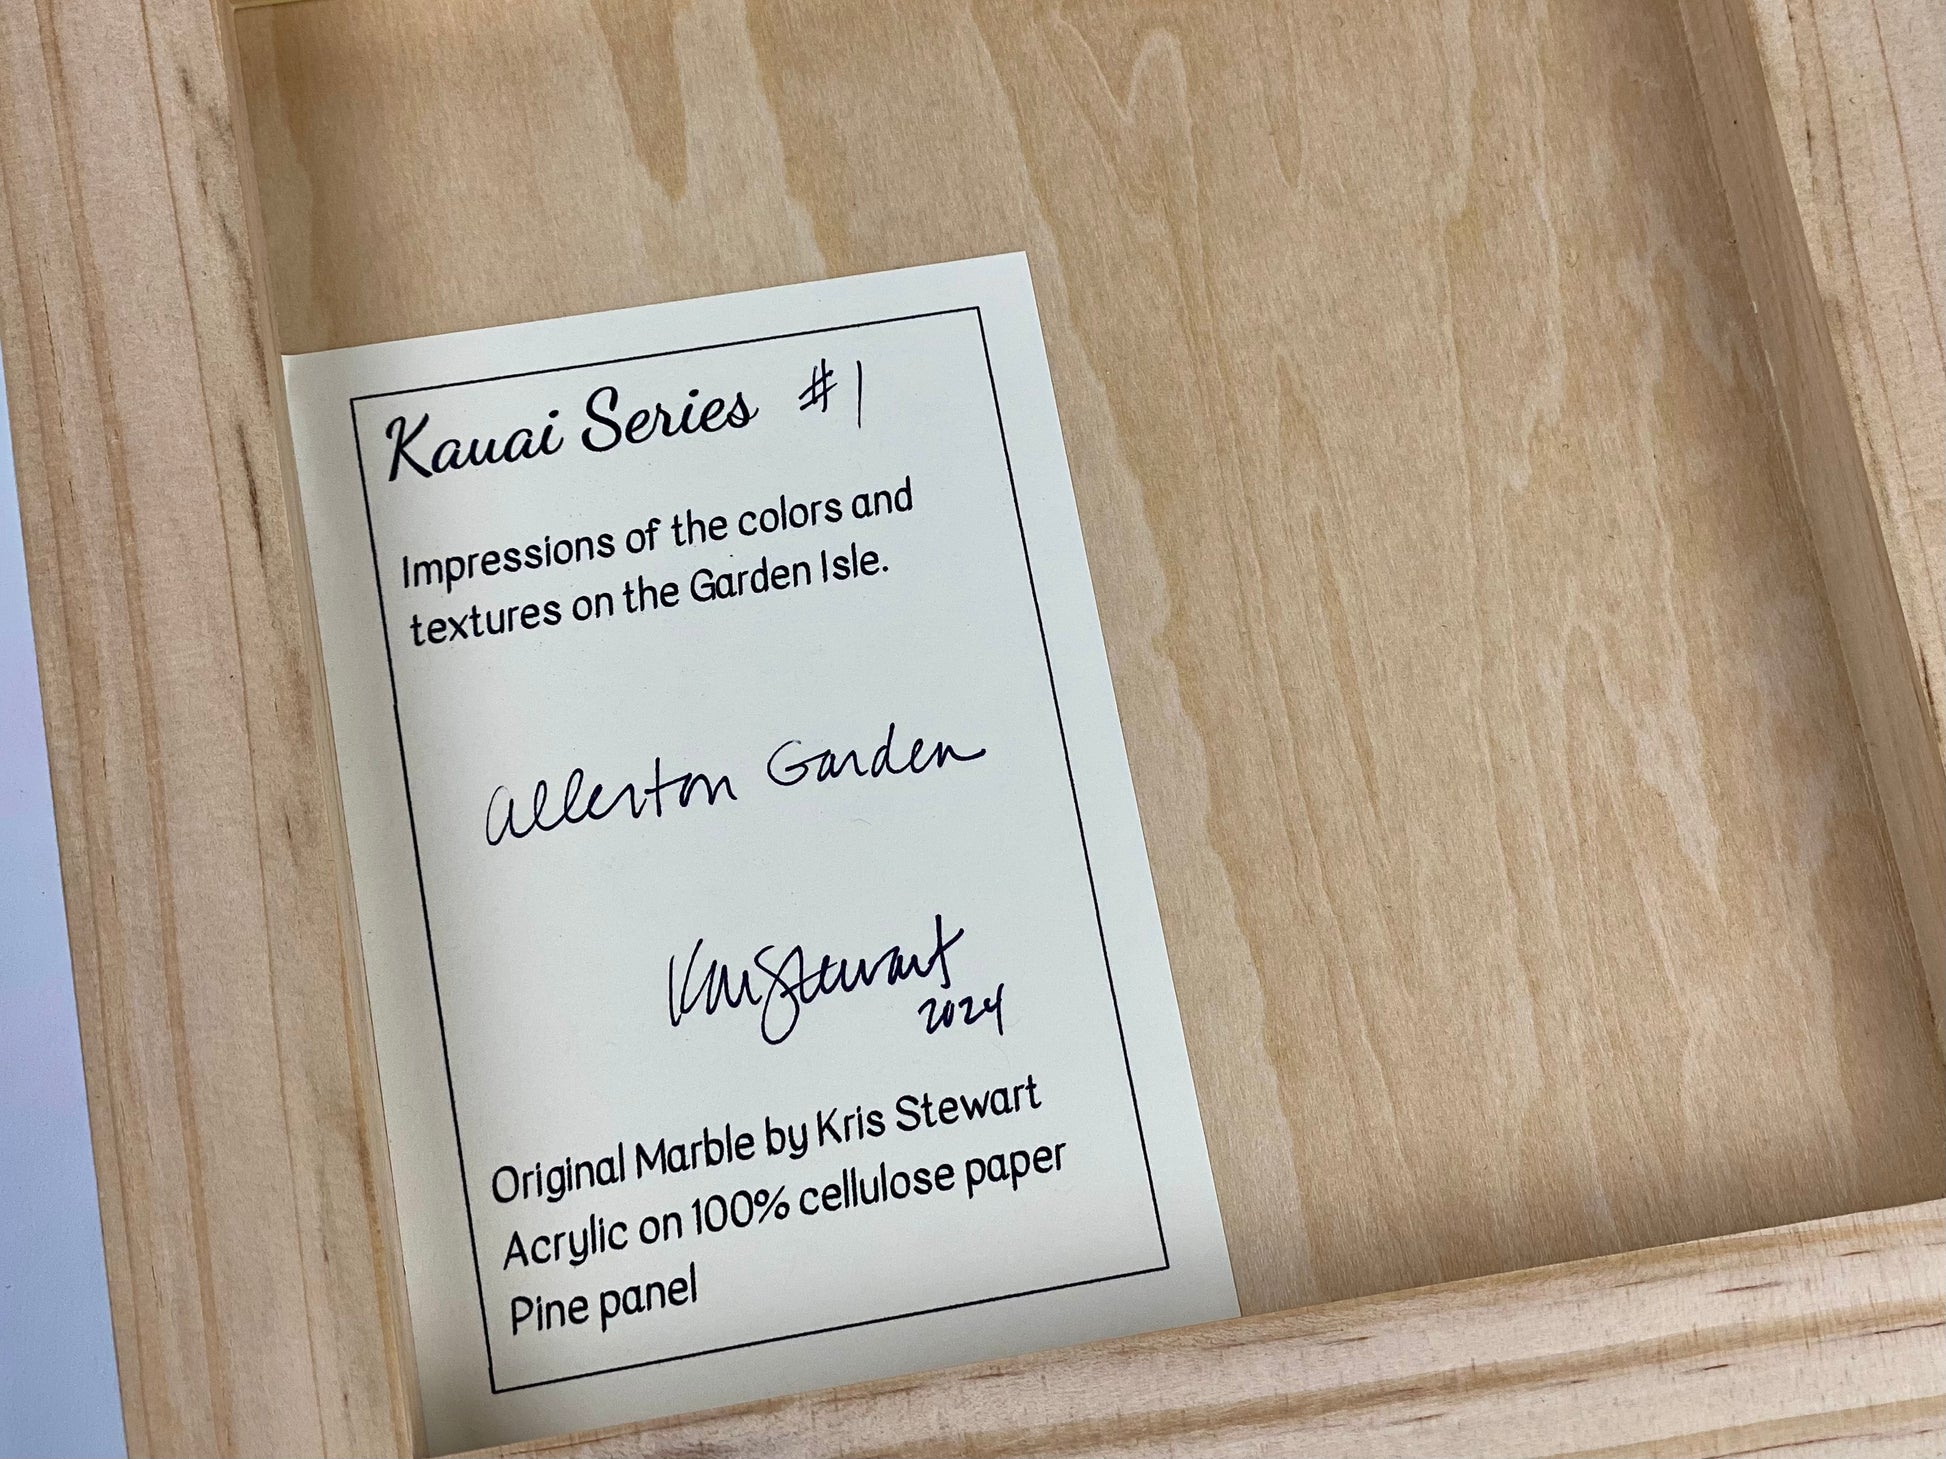 Kauai Series #1
Impressions of the colors and
textures on the Garden Isle.
Allerton Garden
Kris Stewart
2024
Original Marble by Kris Stewart
Acrylic on 100% cellulose paper
Pine panel